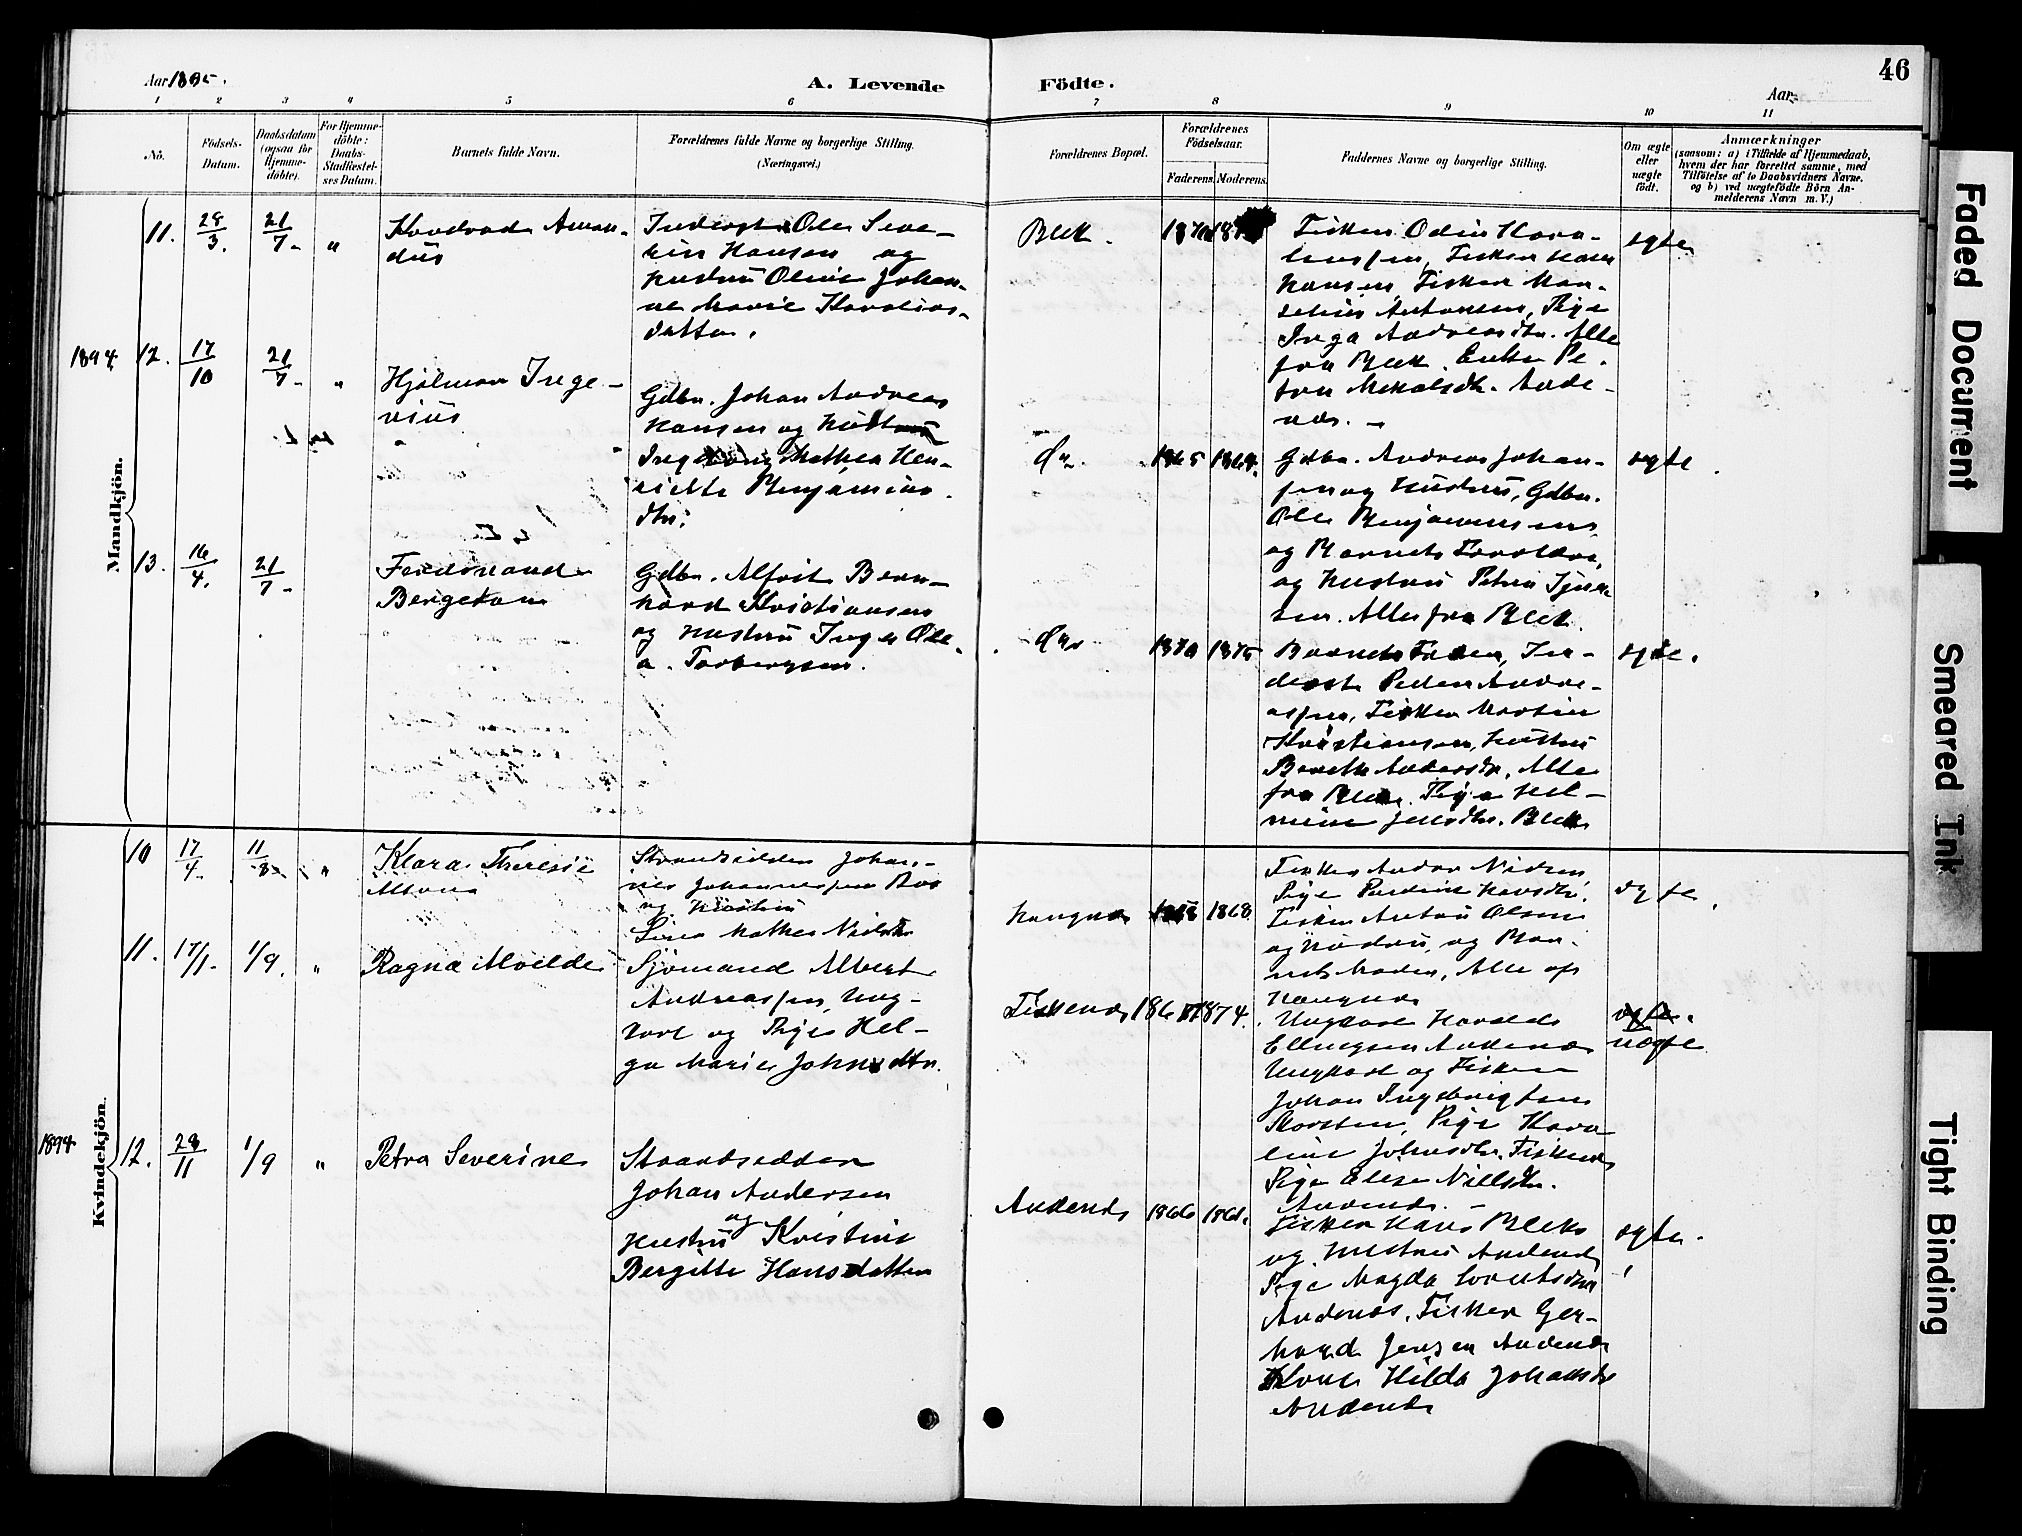 Aar 1895.
A. Levende
Födte.
46
Aar
1 2 3 4 5 6 7 8 9 10 11
No.
Födsels-
Datum.
Daabsdatum
(ogsaa for
Hjemme-
döbte).
For Hjemme-
döbte:
Daabs-
Stadfæstel-
ses Datum.
Barnets fulde Navn.
Forældrenes fulde Navne og borgerlige Stilling.
(Næringsvei.)
Forældrenes Bopæl.
Forældrenes
Födselsaar.
Faderens. Moderens.
Faddernes Navne og borgerlige Stilling.
Om ægte
eller
uægte
födt.
Anmærkninger
(saasom: a) i Tilfælde af Hjemmedaab,
hvem der har forrettet samme, med
Tilföielse af to Daabsvidners Navne.
og b) ved uægtefödte Börn An-
melderens Navn m. V.)
Mandkjön.
11. 28/3. 21/7. "
Inderst Ole Seve-
rin Hansen og
Hustru Oline Johan-
ne Marie Karolius-
datter.
Blek.
Fisker Odin Karo-
liussen, Fisker Hans
Hansen, Fisker Man-
selius Antonsen, Pige
Inga Andreasdtr. Alle
fra Blek. Enke Pe-
tra Mekalsdtr. Ande-
næs. -
egte
1894 12. 17/10 21/7. "
Hjalmar Inge-
vius
Gdbr. Johan Andreas
Hansen og Hustru
Mathea Hen-
riette Benjamins-
dtr.
do.
1865 1868.
Gdbr. Andreas Johan-
sen og Hustru, Gdbr.
Ole Benjaminsens
og Barnets Forældre,
og Hustru Petra
Alle fra Blek.
egte.
13. 16/4. 21/7.
Ferdinand
Gdbr. Alfrit Bern-
hard Kristiansen
og Hustru Inger Ole-
a. Torbergsen.
do.
1870 1875
Barnets Fader, In-
derst Peder Andre-
assen, Fisker Martin
Kristiansen, Hustru
Bereth Andersdtr. Alle
fra Blek. Pige Hel-
mine Jensdtr. Blek
egte.
Kvindekjön.
10 17/4. 11/8. "
Klara Theresie
Altona
Strandsidder Johan-
nes Johannessen Boo
og Hustru
Mathea Nielsdtr
1868.
Fisker Andor Nielsen
Pige
Fisker Anton Olsen
og Hustru, og Bar-
nets Moder, Alle af
egte.
11. 17/1. 1/9. "
Ragna Alvilde
Sjömand Albert
Andreassen, Ung-
karl og Pige Hel-
ga Marie Johnsdtr.
Fiskenes
1874.
Ungkarl Harald
Ellingsen Andenæs
Ungkarl og Fisker
Johan Ingebrigtsen
Pige Karo-
line Johnsdtr. Fiskenæs
Pige Elise Nielsdtr.
Andenæs. -
egte.
uægte
1894 12. 28/11 1/9 "
Petra Severine
Strandsidder
Johan Andersen
og
Hustru Kristine
Bergitte Hansdatter
Andenæs
1866
Fisker Hans Bleks
og Hustru Andenæs
Pige Magda Lorentsdtr
Andenæs. Fisker Ger-
hard Jensen Andenæs
Kone Hilda Johansdtr
Andenæs
egte.
Faded Document
Smeared Ink
Tight Binding